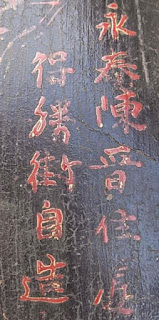 永泰陳晉住居
得勝街自造